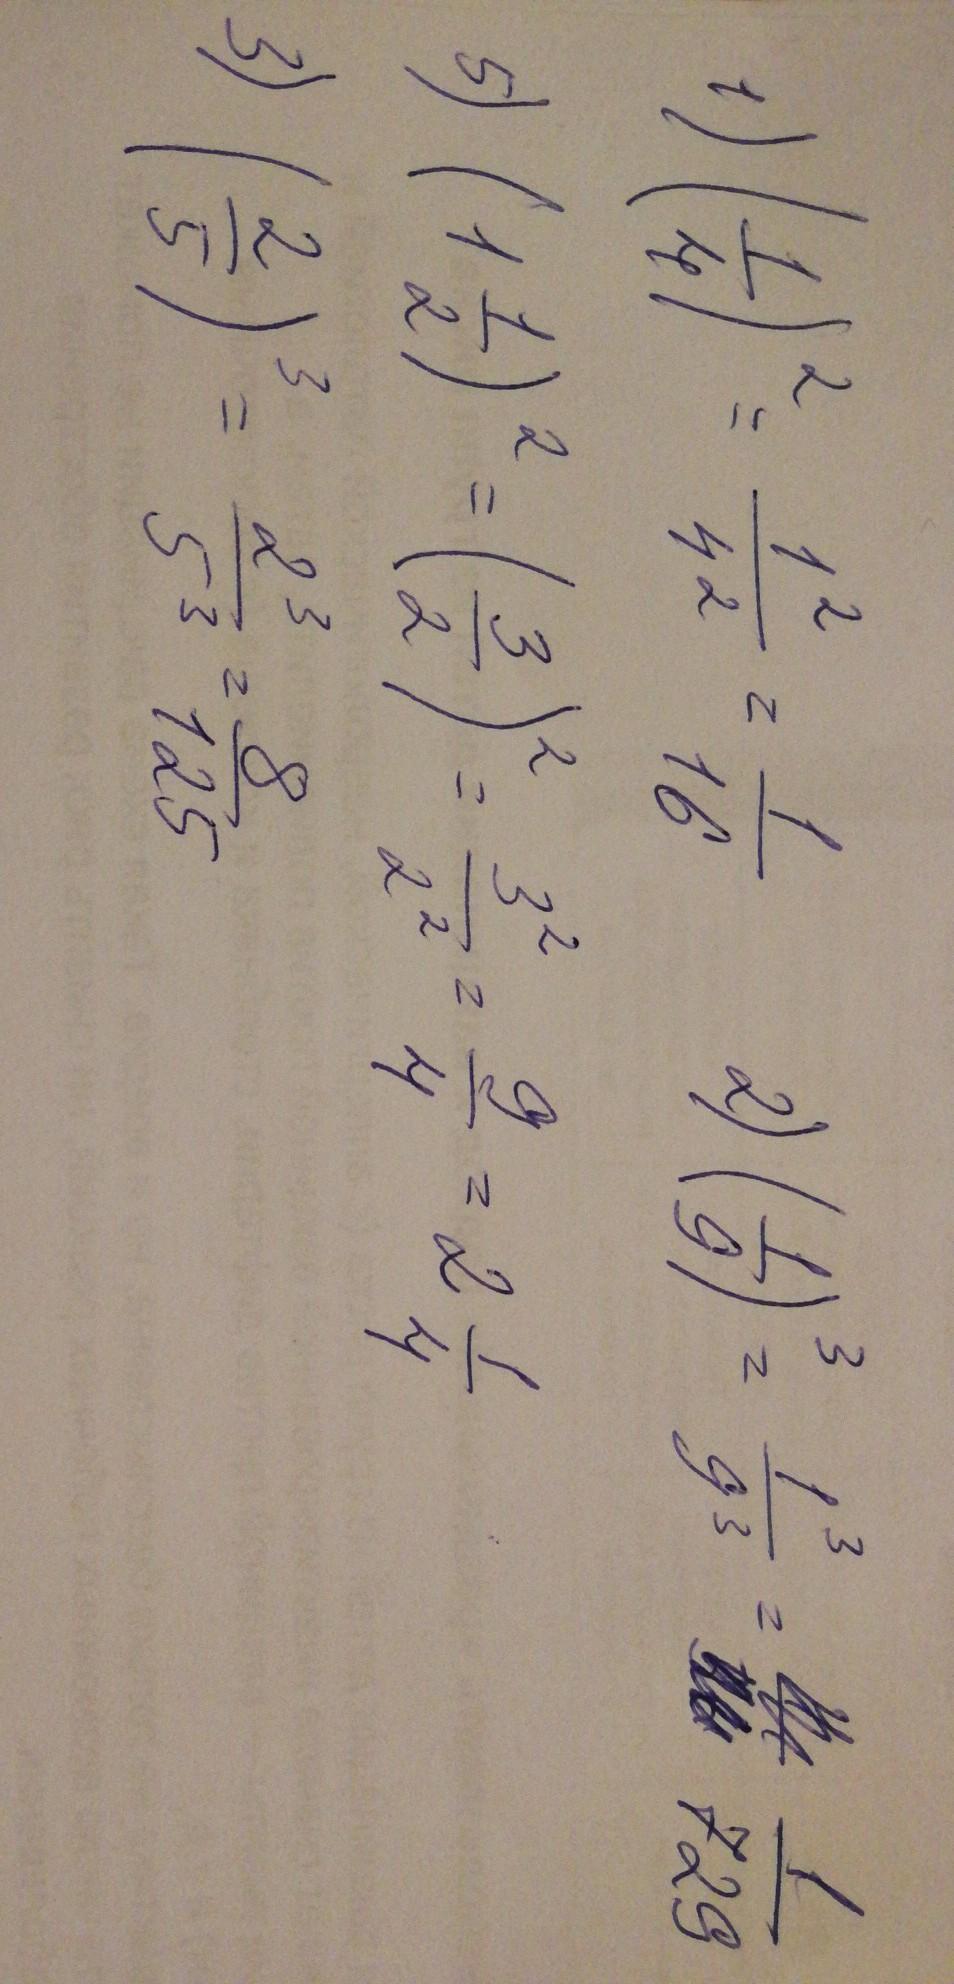 1) (1/4)² = 1²/4² = 1/16 2) (1/9)³ = 1³/9³ = 1/729
5) (1 1/2)² = (3/2)² = 3²/2² = 9/4 = 2 1/4
3) (2/5)³ = 2³/5³ = 8/125